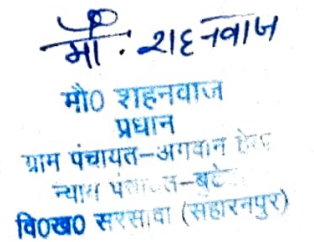 मौ. शहनवाज
मौ0 शहनवाज
प्रधान
ग्राम पंचायत-अगवान
न्याय
वि0ख0 सरसावा (सहारनपुर)